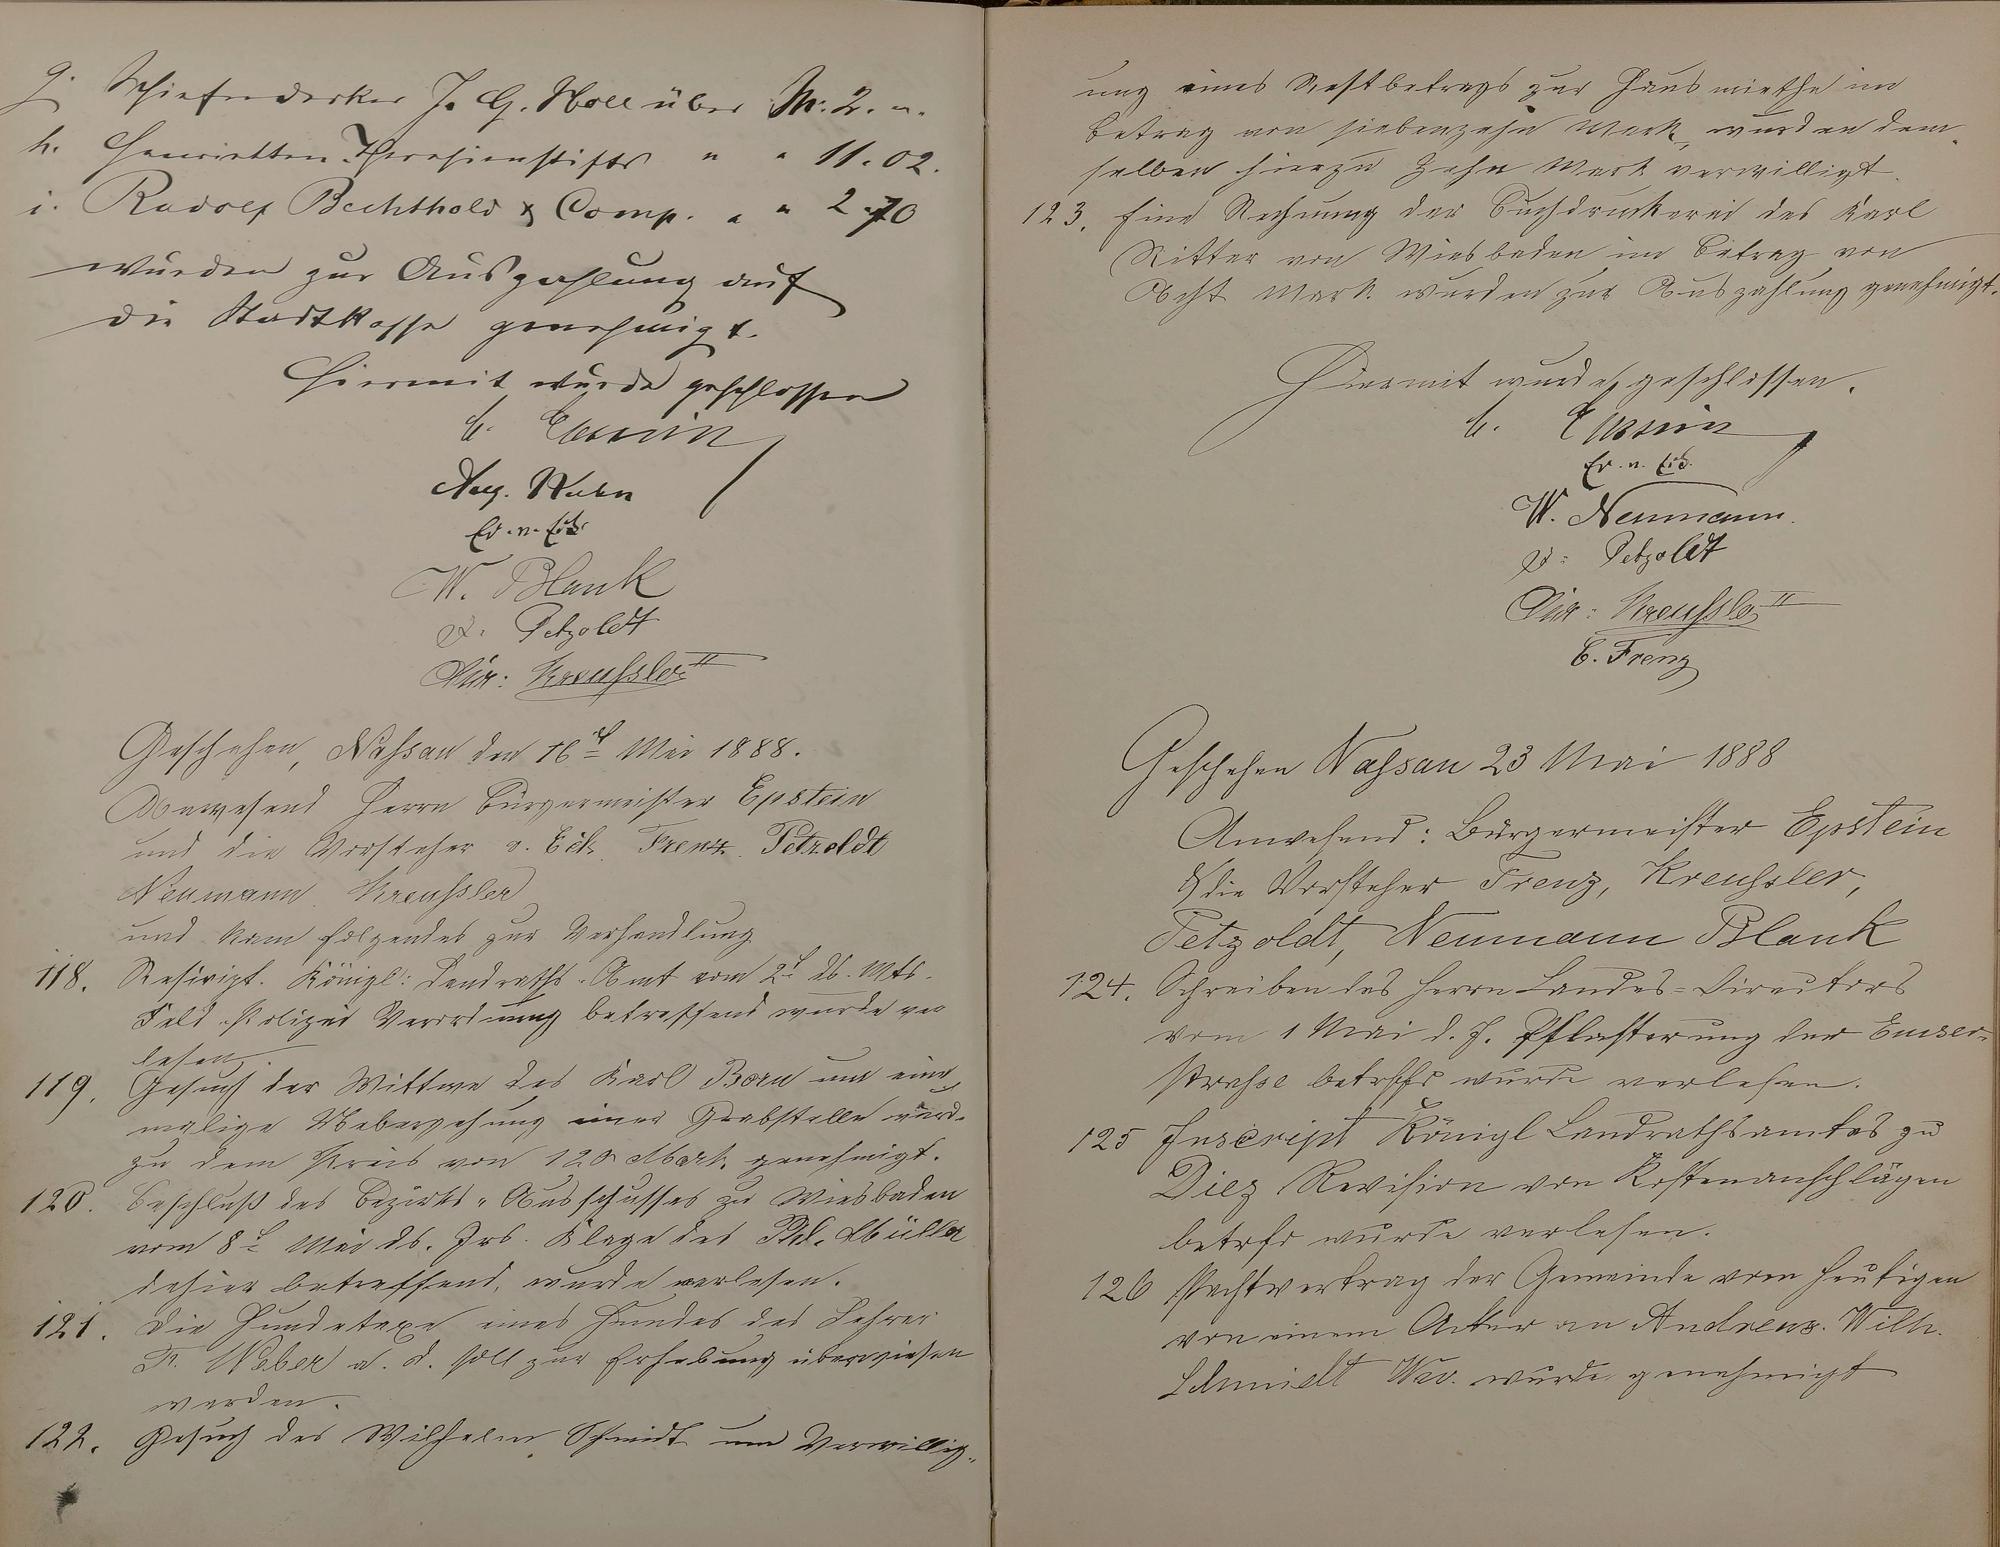 g. Schieferdecker J. G. Noll über M: 2. ".
h. Henrietten Theresienstifts " " 11.02.
i. Rudolf Bechthold & Comp. " " 2.70
wurden zur Auszahlung auf
die Stadtkasse genehmigt.
Hiermit wurde geschlossen
Epstein
Aug.
W. Blank
Petzoldt
Kreußler II
Geschehen, Nassau den 16t Mai 1888.
Anwesend Herrn Bürgermeister Epstein
und die Vorsteher v. Eck. Frenz. Petzoldt
Neumann. Kreußler
und kam folgendes zur Verhandlung
118. Rescript. Königl: Landraths-Amt vom 2t ds. Mts.
Feld-Polizei Verordnung betreffend wurde ver
lesen.
119. Gesuch der Wittwe des Karl Born um ein
malige Uebergehung einer Grabstelle wurd.
zu dem Preis von 120 Mark genehmigt.
120. Beschluß des Bezirks-Ausschusses zu Wiesbaden
vom 8t Mai ds. Jrs. Klage des Phl. Müller
dahier betreffend, wurde verlesen.
121. Die Hundetaxe eines Hundes des Lehrer
Weber a. D. soll zur Erhebung überwiesen
werden.
122. Gesuch des Wilhelm Schmidt um Verwillig-
ung eines Restbetrags zur Hausmiethe im
Betrag von siebenzehn Mark, wurden dem-
selben hierzu Zehn Mark verwilligt.
123. Eine Rechnung der Buchdruckerei des Karl
Ritter von Wiesbaden im Betrag von
Acht Mark. wurden zur Auszahlung genehmigt.
Hiermit wurde geschlossen.
Epstein
W. Neumann.
Petzoldt
Kreußler II
C. Frenz
Geschehen Nassau 23 Mai 1888
Anwesend: Bürgermeister Epstein
& die Vorsteher Frenz, Kreußler,
Petzoldt, Neumann Blank
124. Schreiben des Herrn Landes-Directors
vom 1 Mai d. J. Pflasterung der Emser-
strasse betreffs wurde verlesen.
125 Inscript Königl Landrathsamtes zu
Diez Revision von Kostenanschlägen
betrfs wurde verlesen.
126 Pachtvertrag der Gemeinde vom heutigen
von einem Acker an Andreas. Wilh.
Schmidt Wwe. wurde genehmigt